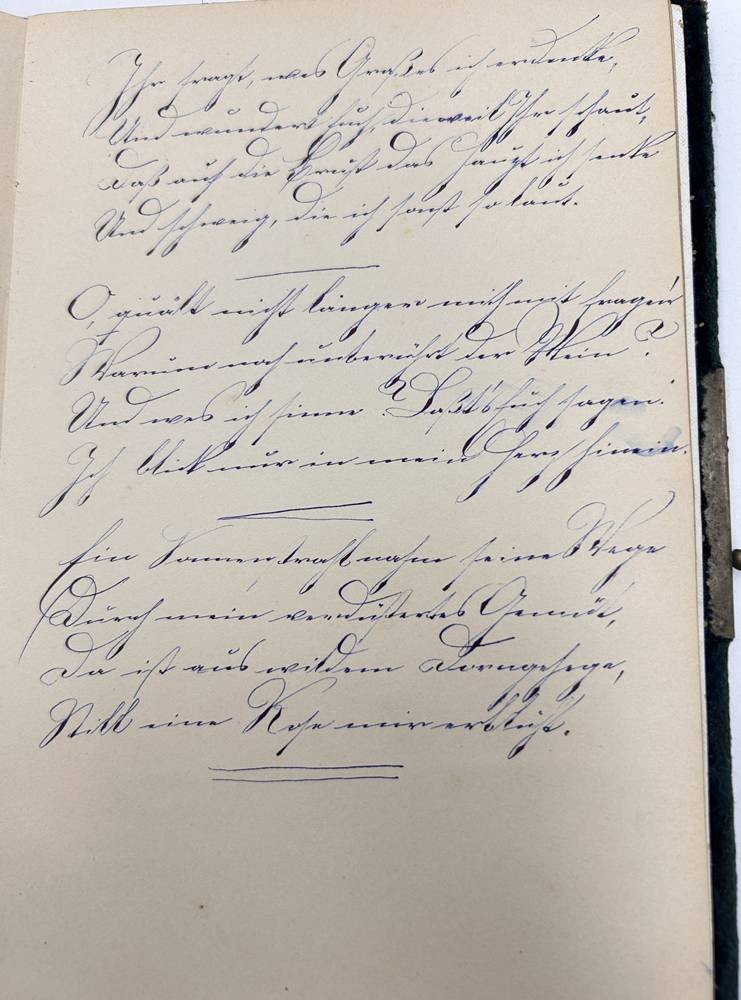 Ihr fragt, was Großes ich erdenke,
Und wundert Euch, dieweil Ihr schaut,
Daß auf die Brust das Haupt ich senke
Und schweig, die ich sonst so laut.
O, quält nicht länger mich mit Fragen
Warum noch unberührt der Wein?
Und was ich sinne? Laßt's Euch sagen:
Ich blick nur in mein Herz hinein.
Ein Sonnenstrahl nahm seine Wege
Durch mein verdüstertes Gemüt,
Da ist aus wildem Dorngehege,
Still eine Rose mir erblüht.